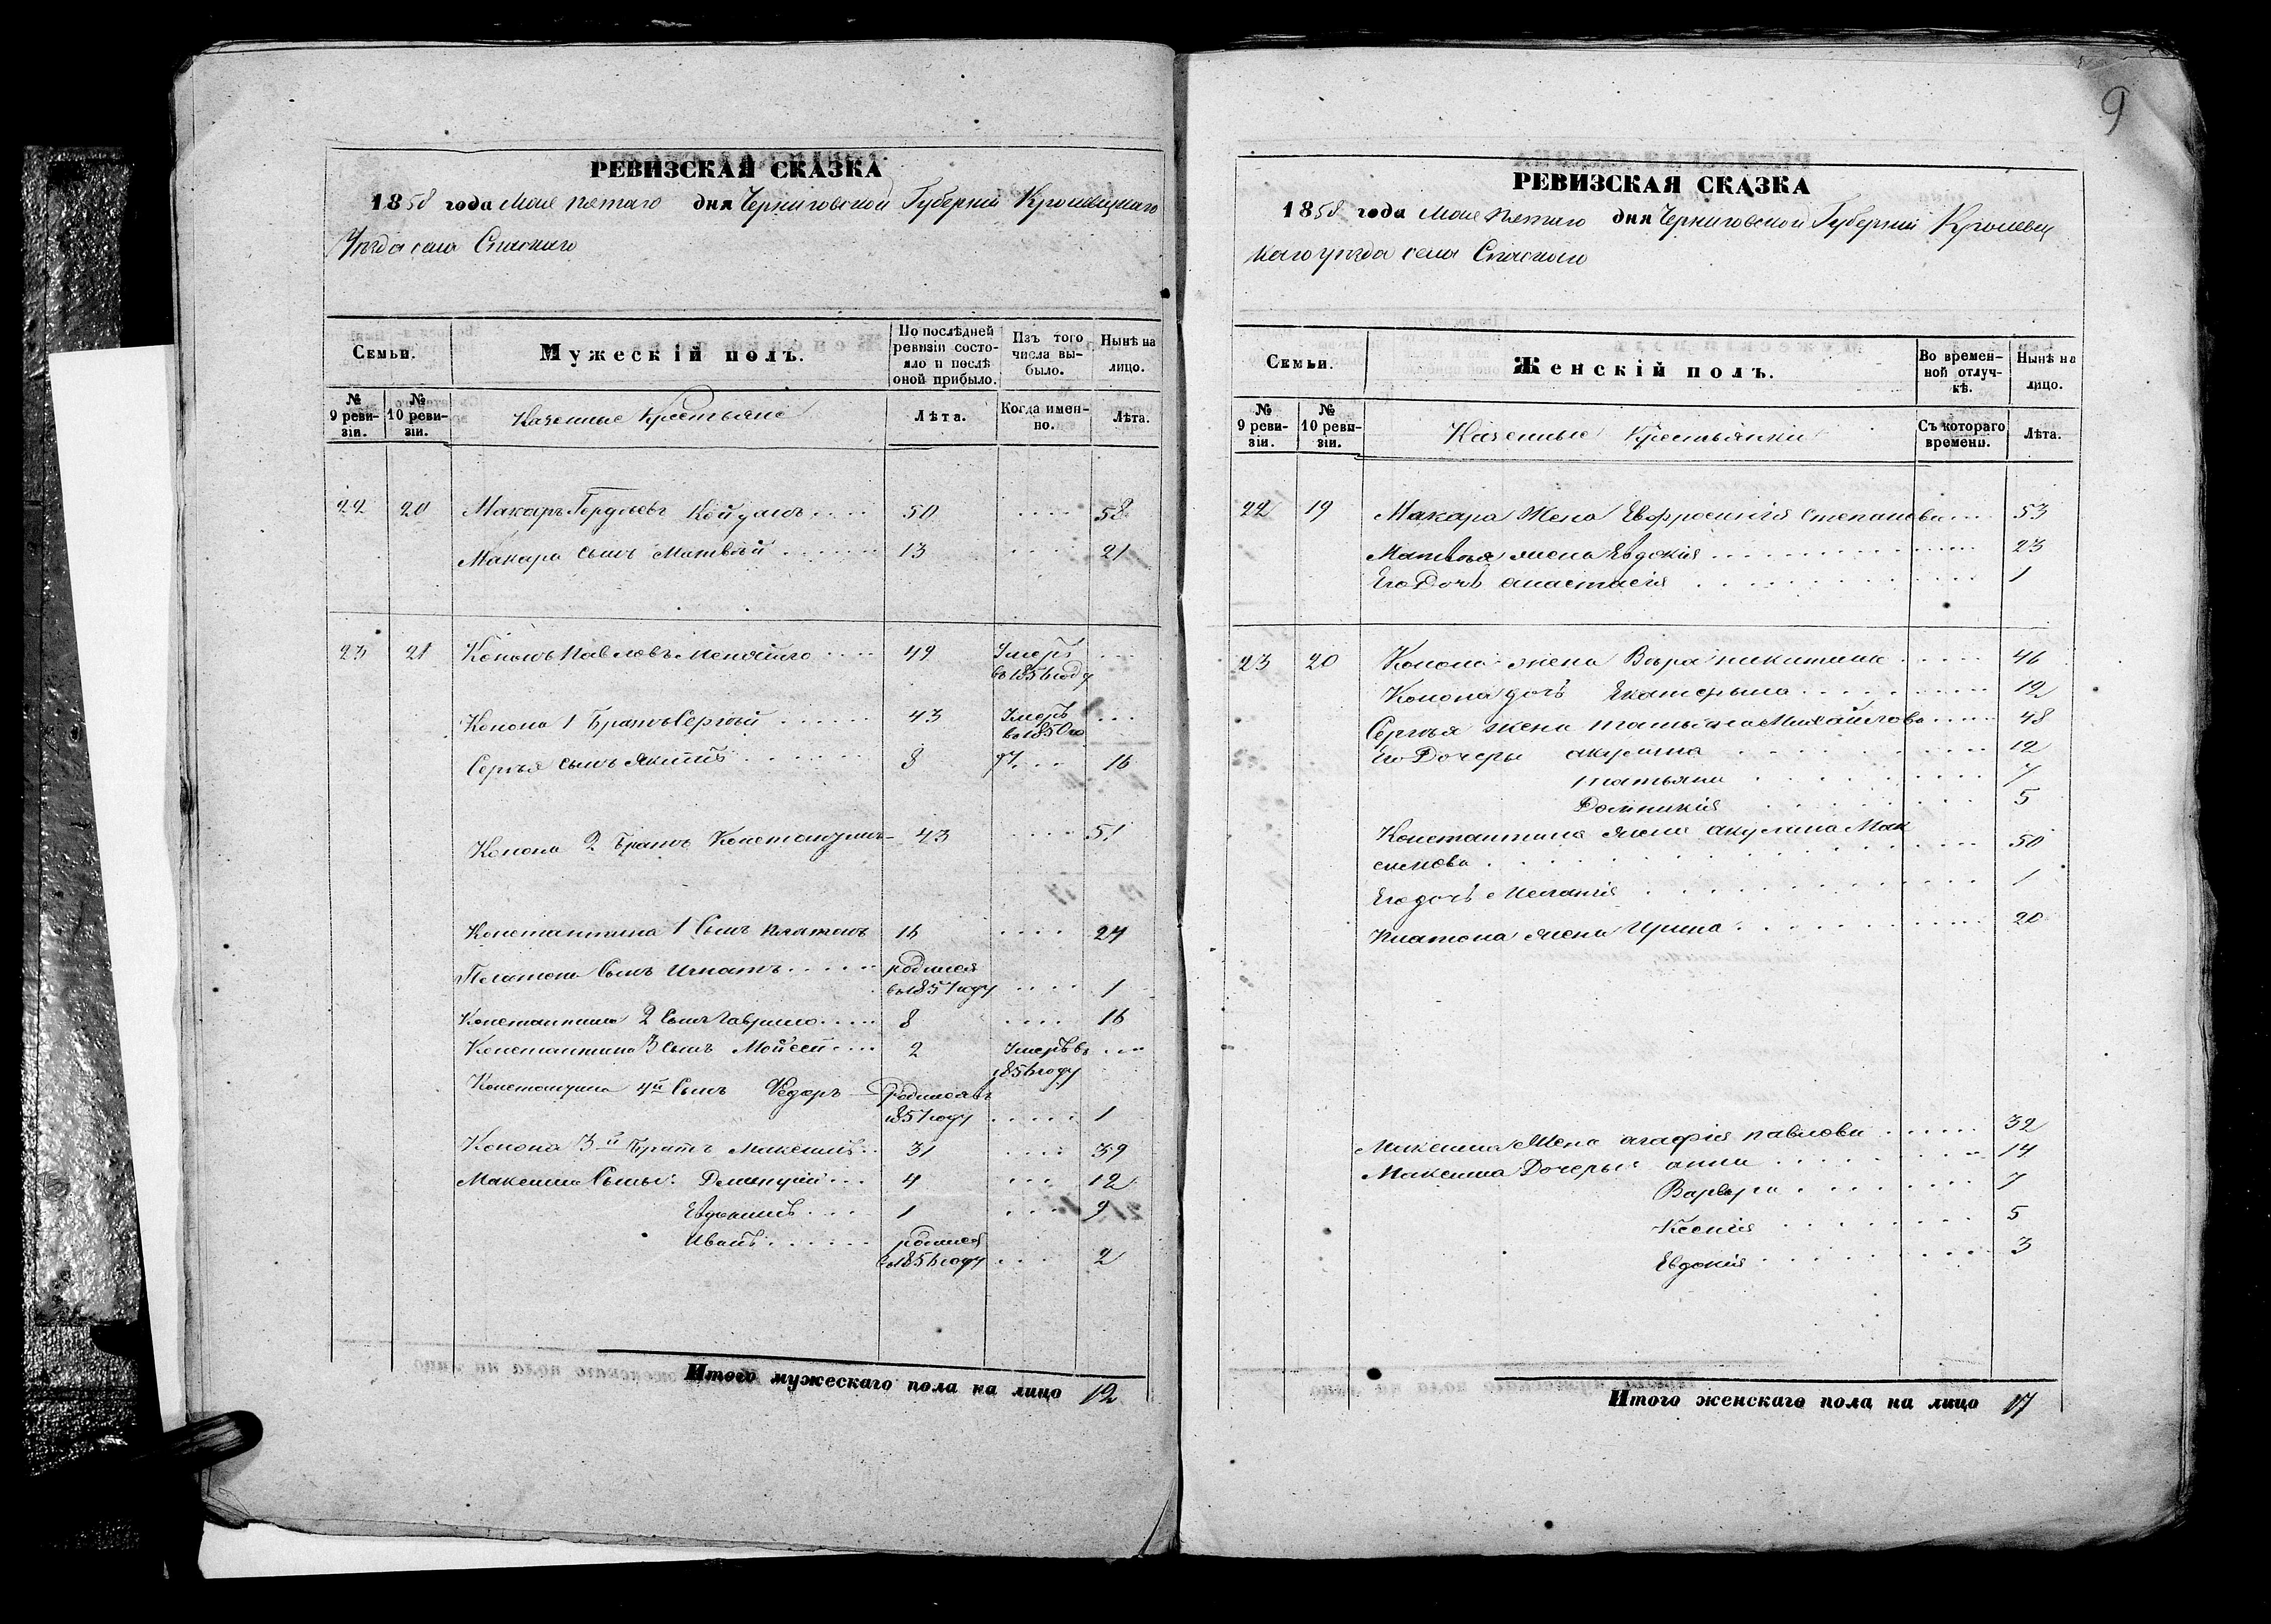 РЕВИЗСКАЯ СКАЗКА
1858 года Мая пятаго дня Черниговской Губерніи Кролевецкаго
Уѣзда села Спаского
Семьи. Мужескій полъ. По послѣдней ревизіи состояло и послѣ оной прибыло. Изъ того числа выбыло. Нынѣ на лицо.
№ 9 ревизіи. № 10 ревизіи. Казенные Крестьяне Лѣта. Когда именно. Лѣта.
22 20 Макаръ Гордѣевъ 50 .... 58
Макара сынъ Матвѣй ...... 13 .... 21
23 21 Кононъ Павловъ .... 49 Умеръ ...
въ 1856 году
Конона 1 Братъ Сергѣй ...... 43 Умеръ ...
въ 1850 го
Сергѣя сынъ ...... 8 ду.... 16
Конона 2 Братъ Константинъ 43 .... 51
Константина 1 Сынъ Платонъ 16 .... 24
Платона Сынъ Игнатъ..... родился
въ 1857 году .... 1
Константина 2 Сынъ Гаврило..... 8 .... 16
Константина 3 Сынъ Мойсей.... 2 Умеръ въ ...
1856 году
Константина 4й Сынъ Федоръ Родился въ
1857 году ..... 1
Конона 3й Братъ Максимъ.. 31 .... 39
Максима Сыны: Дементий... 4 ... 12
Евдокимъ.... 1 ... 9
Иванъ...... родился
въ 1856 году .... 2
Итого мужескаго пола на лицо 12
9
РЕВИЗСКАЯ СКАЗКА
1858 года Мая пятаго дня Черниговской Губерніи Кролевец
каго уѣзда села Спаского
Семьи. Женскій полъ. Во временной отлучкѣ. Нынѣ на лицо.
№ 9 ревизіи. № 10 ревизіи. Казенные Крестьянки Съ котораго времени. Лѣта.
22 19 Макара Жена Евфросинія Степанова... 53
Матвѣя жена Евдокія ............ 23
Его Дочь анастасія ............ 1
23 20 Конона жена Вѣра никитина ..... 46
Конона дочь Екатерына ........ 12
Сергѣя жена татьяна Михайлова..... 48
Его Дочеры акулина ......... 12
татьяна ........ 7
Домникія ........ 5
Константина жена акулина Мак
симова ............ 50
Его дочь Меланія .......... 1
Платона жена Ирина .......... 20
Максима Жена агафія павлова ...... 32
Максима Дочеры: анна ........ 14
Варвара ........ 7
Ксенія ........ 5
Евдокія ........ 3
Итого женскаго пола на лицо 17